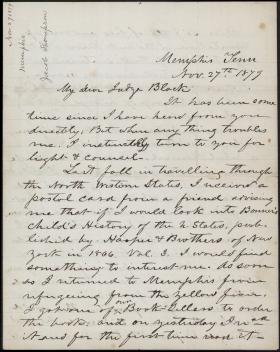 Nov 27 1879
Memphis
Jacob Thompson
Memphis Tenn
Nov. 27th 1879
My dear Judge Black
It has been some
time since I have heard from you
directly, But when any thing troubles
me. I instinctively turn to you for
light & counsel.
Last fall in travelling through
the North Western States, I received a
postal card from a friend advising
me that if I would look into Bonner's
Child's History of the U States, pub-
lished by Harper & Brothers of New
York in 1866. Vol. 3. I would find
something to interest me. As soon
as I returned to Memphis from
refugeeing from the yellow fever
I got one of our Book-Sellers to order
the book, and on yesterday I read
it and for the first time read it